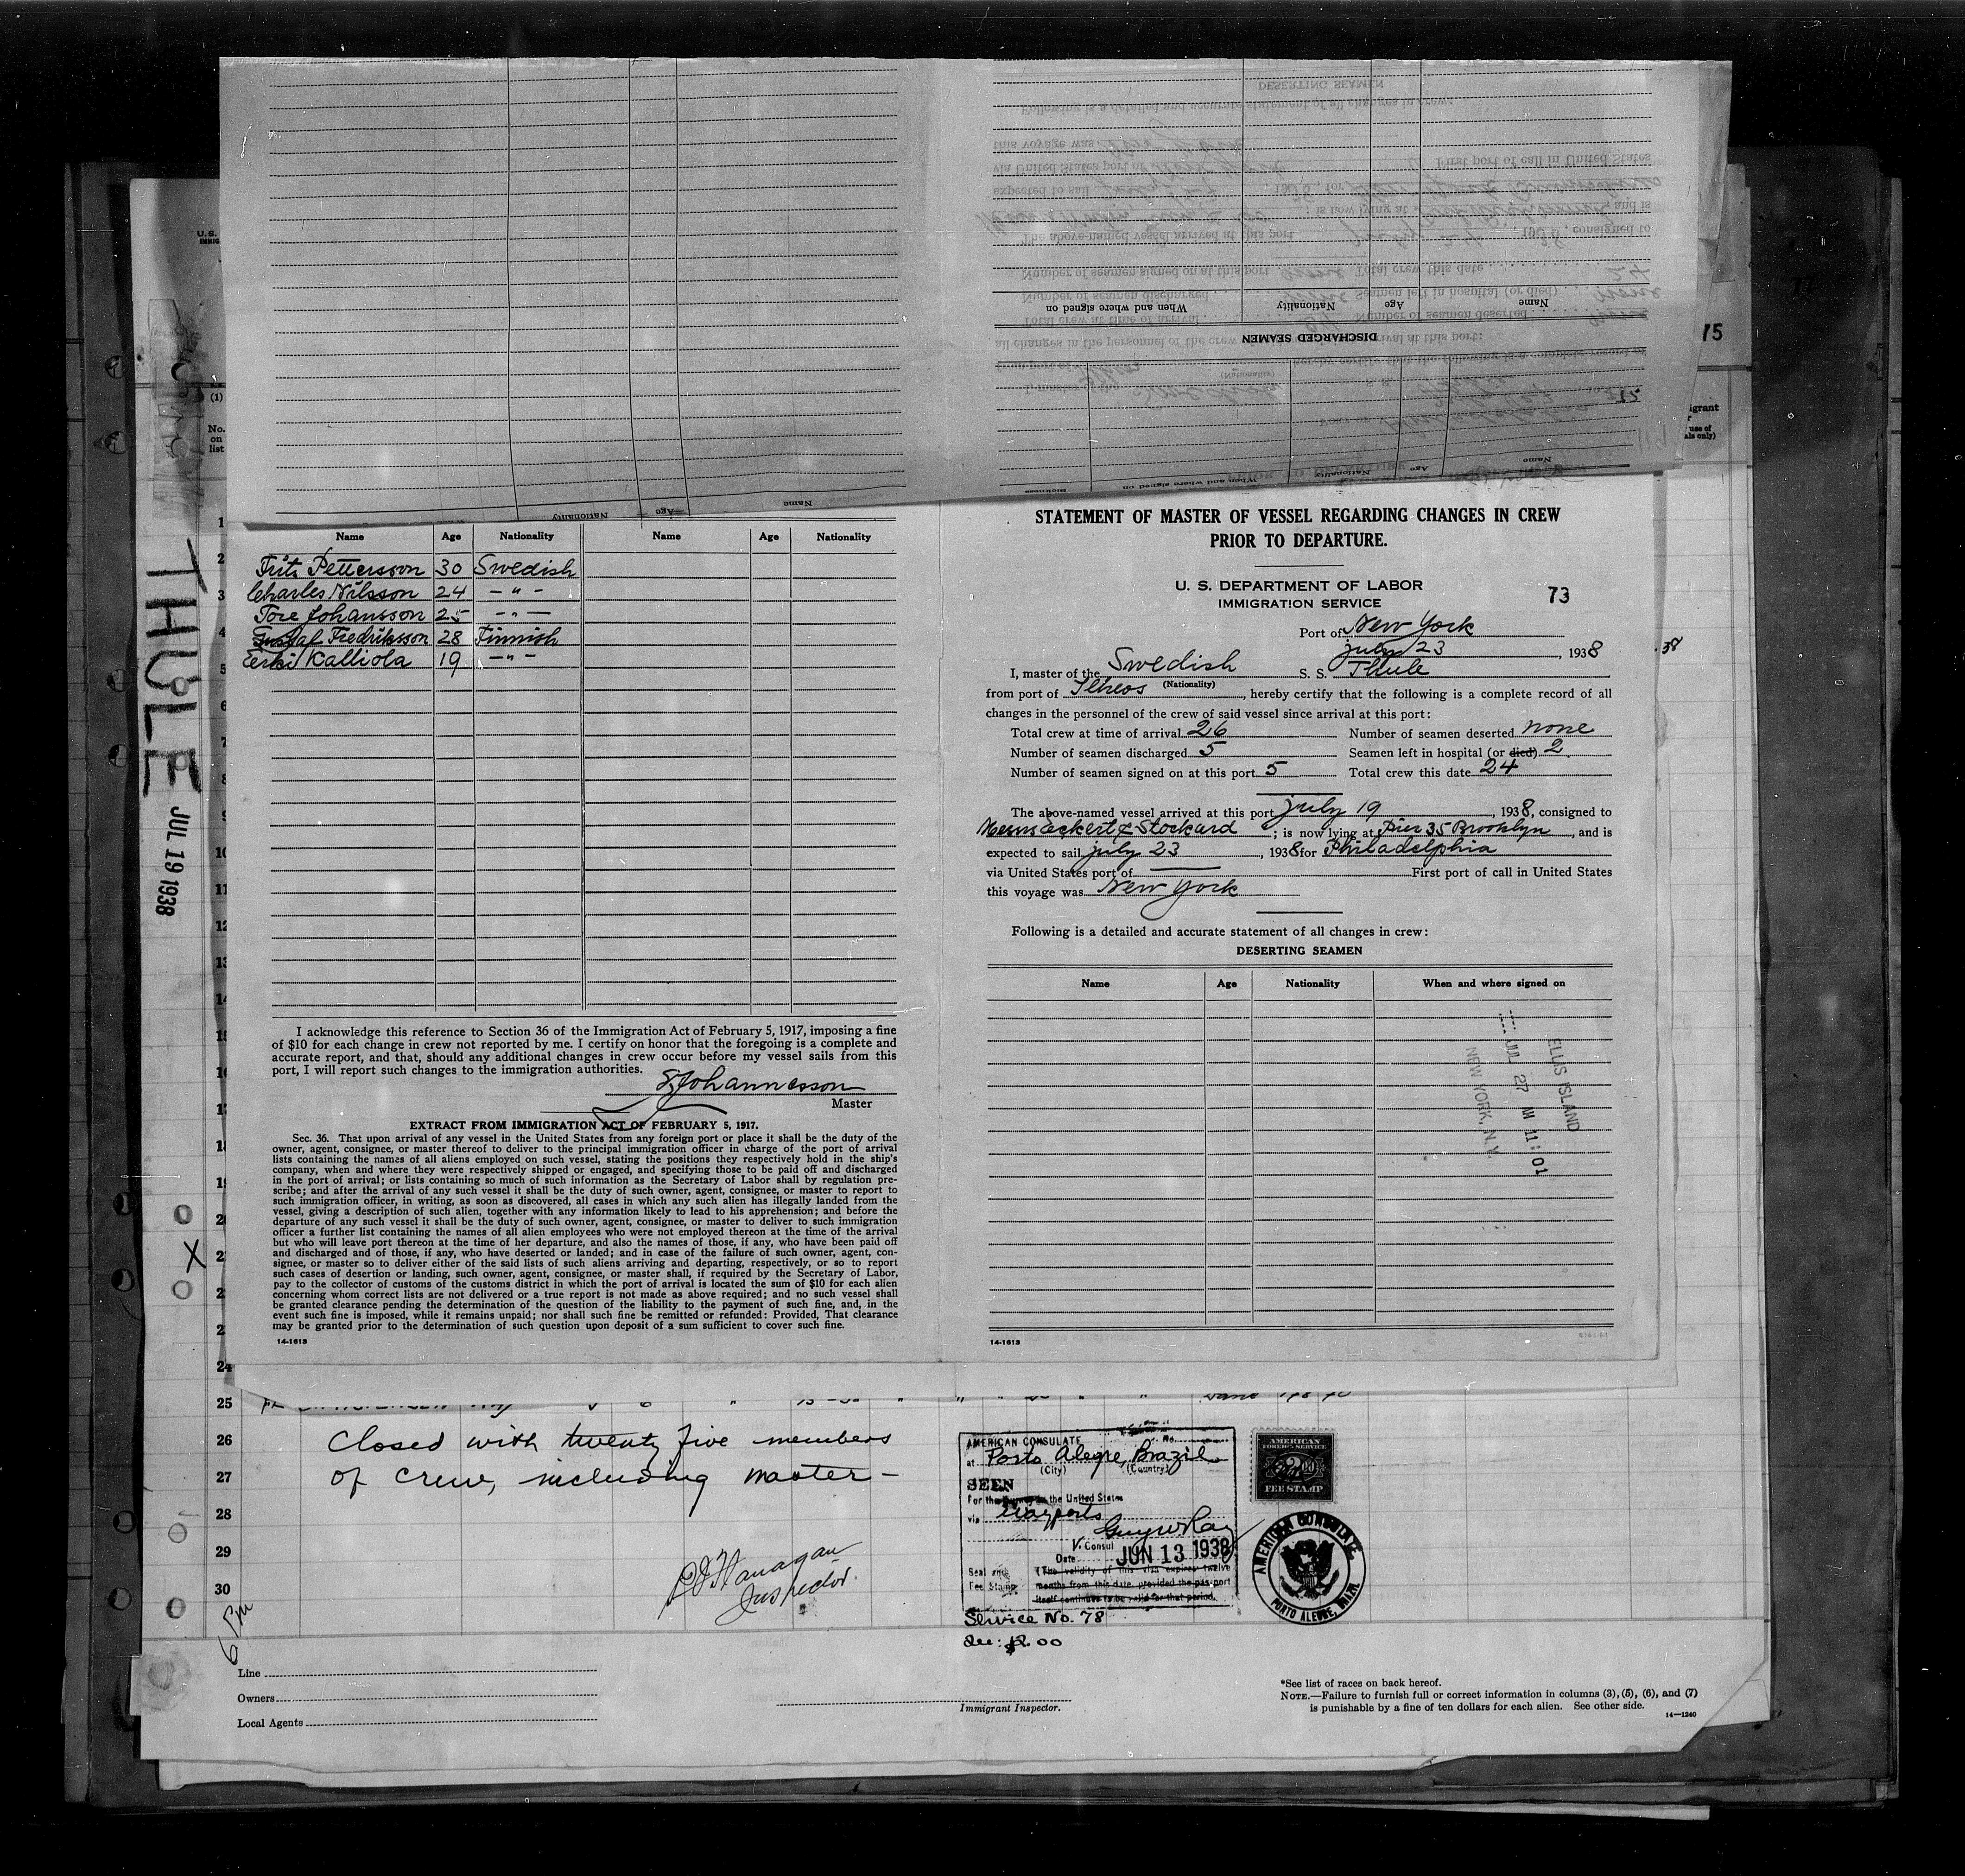 Name Age Nationality Name Age Nationality
Fritz Pettersson 30 Swedish
Charles Nilsson 24 - " -
Tore Johansson 25 - " -
Gustaf Fredriksson 28 Finnish
Eerki Kalliola 19 - " -
I acknowledge this reference to Section 36 of the Immigration Act of February 5, 1917, imposing a fine
of $10 for each change in crew not reported by me. I certify on honor that the foregoing is a complete and
accurate report, and that, should any additional changes in crew occur before my vessel sails from this
port, I will report such changes to the immigration authorities.
Johannesson
Master
EXTRACT FROM IMMIGRATION ACT OF FEBRUARY 5, 1917.
Sec. 36. That upon arrival of any vessel in the United States from any foreign port or place it shall be the duty of the
owner, agent, consignee, or master thereof to deliver to the principal immigration officer in charge of the port of arrival
lists containing the names of all aliens employed on such vessel, stating the positions they respectively hold in the ship's
company, when and where they were respectively shipped or engaged, and specifying those to be paid off and discharged
in the port of arrival; or lists containing so much of such information as the Secretary of Labor shall by regulation pre-
scribe; and after the arrival of any such vessel it shall be the duty of such owner, agent, consignee, or master to report to
such immigration officer, in writing, as soon as discovered, all cases in which any such alien has illegally landed from the
vessel, giving a description of such alien, together with any information likely to lead to his apprehension; and before the
departure of any such vessel it shall be the duty of such owner, agent, consignee, or master to deliver to such immigration
officer a further list containing the names of all alien employees who were not employed thereon at the time of the arrival
but who will leave port thereon at the time of her departure, and also the names of those, if any, who have been paid off
and discharged and of those, if any, who have deserted or landed; and in case of the failure of such owner, agent, con-
signee, or master so to deliver either of the said lists of such aliens arriving and departing, respectively, or so to report
such cases of desertion or landing, such owner, agent, consignee, or master shall, if required by the Secretary of Labor,
pay to the collector of customs of the customs district in which the port of arrival is located the sum of $10 for each alien
concerning whom correct lists are not delivered or a true report is not made as above required; and no such vessel shall
be granted clearance pending the determination of the question of the liability to the payment of such fine, and, in the
event such fine is imposed, while it remains unpaid; nor shall such fine be remitted or refunded: Provided, That clearance
may be granted prior to the determination of such question upon deposit of a sum sufficient to cover such fine.
14-1613
DISCHARGED SEAMEN
Name Age Nationality When and where signed on
STATEMENT OF MASTER OF VESSEL REGARDING CHANGES IN CREW
PRIOR TO DEPARTURE.
U. S. DEPARTMENT OF LABOR
IMMIGRATION SERVICE
73
Port of New York
july 23, 1938
I, master of the Swedish S. S. Thule
(Nationality)
from port of Ilheos, hereby certify that the following is a complete record of all
changes in the personnel of the crew of said vessel since arrival at this port:
Total crew at time of arrival 26 Number of seamen deserted none
Number of seamen discharged 5 Seamen left in hospital (or died) 2
Number of seamen signed on at this port 5 Total crew this date 24
The above-named vessel arrived at this port july 19, 1938, consigned to
Messrs Eckert & Stockard; is now lying at Pier 35 Brooklyn, and is
expected to sail july 23, 1938 for Philadelphia
via United States port of First port of call in United States
this voyage was New York
Following is a detailed and accurate statement of all changes in crew:
DESERTING SEAMEN
Name Age Nationality When and where signed on
ELLIS ISLAND
JUL 27 AM 11:01
NEW YORK, N.Y.
14-1613
THULE
JUL 19 1938
(1)
No.
on
list
75
1
2
3
4
5
6
7
8
9
10
11
12
13
14
24
25
26
27
28
29
30
Closed with twenty five members
of crew, including master -
Flanagan
Inspector
6 PM
AMERICAN CONSULATE No.
at Porto Alegre, Brazil
(City) (Country)
SEEN
For the Journey to the United States
via Wayports
Guy W Ray
V. Consul
Date JUN 13 1938
Seal and (The validity of this visa expires twelve
Fee Stamp months from this date, provided the passport
itself continues to be valid for that period.
Service No. 78
fee: $2.00
AMERICAN
FOREIGN SERVICE
FEE STAMP
AMERICAN CONSULATE
PORTO ALEGRE, BRAZIL
Line
Owners
Local Agents
Immigrant Inspector.
*See list of races on back hereof.
NOTE.—Failure to furnish full or correct information in columns (3), (5), (6), and (7)
is punishable by a fine of ten dollars for each alien. See other side.
14—1240